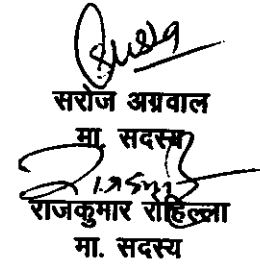 सरोज अग्रवाल
मा. सदस्य
राजकुमार रोहिल्ला
मा. सदस्य